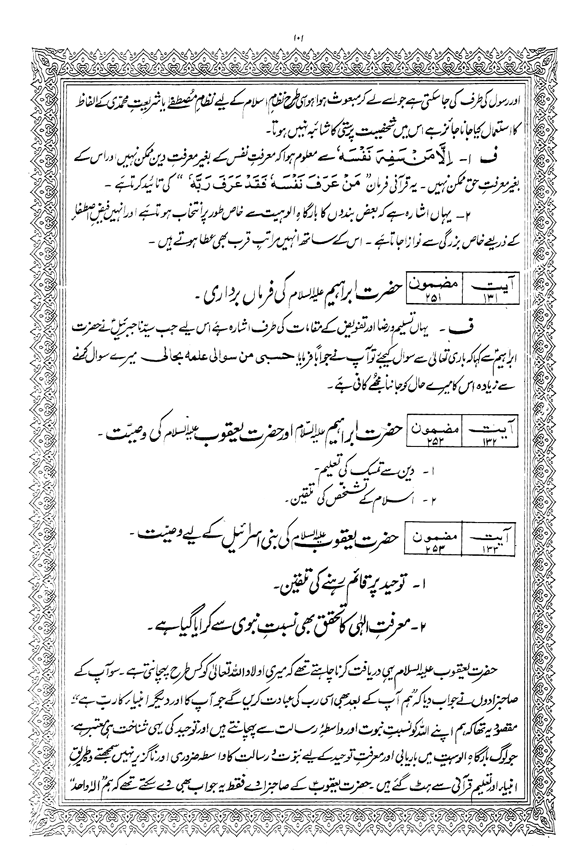 ۱۰۱
اور رسول کی طرف کی جا سکتی ہے جو اسے لے کر مبعوث ہوا ہو اسی طرح نظامِ اسلام کے لیے نظامِ مصطفےٰ یا شریعتِ محمدی کے الفاظ
کا استعمال کیا جانا جائز ہے اس میں شخصیت پرستی کا شائبہ نہیں ہوتا۔
ف ۱۔ اِلَّا مَنْ سَفِهَ نَفْسَهٗ سے معلوم ہوا کہ معرفتِ نفس کے بغیر معرفتِ دین ممکن نہیں اور اس کے
بغیر معرفتِ حق ممکن نہیں۔ یہ قرآنی فرمان ”مَنْ عَرَفَ نَفْسَهٗ فَقَدْ عَرَفَ رَبَّهٗ“ کی تائید کرتا ہے۔
۲۔ یہاں اشارہ ہے کہ بعض بندوں کا بارگاہِ الوہیت سے خاص طور پر انتخاب ہوتا ہے اور انہیں فیضِ اصطفٰے
کے ذریعے خاص بزرگی سے نوازا جاتا ہے۔ اس کے ساتھ انہیں مراتبِ قرب بھی عطا ہوتے ہیں۔
آیت ۱۳۱ مضمون ۲۵۱ حضرت ابراہیم علیہ السلام کی فرماں برداری۔
ف۔ یہاں تسلیم و رضا اور تفویض کے مقامات کی طرف اشارہ ہے اس لیے جب سیدنا جبرئیلؑ نے حضرت
ابراہیمؑ سے کہا کہ باری تعالیٰ سے سوال کیجئے تو آپ نے جواباً فرمایا حسبی من سوالی علمه بحالی میرے سوال کرنے
سے زیادہ اس کا میرے حال کو جاننا مجھے کافی ہے۔
آیت ۱۳۲ مضمون ۲۵۲ حضرت ابراہیم علیہ السلام اور حضرت یعقوب علیہ السلام کی وصیت۔
۱۔ دین سے تمسک کی تعلیم۔
۲۔ اسلام کے تشخص کی تلقین۔
آیت ۱۳۳ مضمون ۲۵۳ حضرت یعقوب علیہ السلام کی بنی اسرائیل کے لیے وصیت۔
۱۔ توحید پر قائم رہنے کی تلقین۔
۲۔ معرفتِ الٰہی کا تحقق بھی نسبتِ نبوی سے کرایا گیا ہے۔
حضرت یعقوب علیہ السلام یہی دریافت کرنا چاہتے تھے کہ میری اولاد اللہ تعالیٰ کو کس طرح پہچانتی ہے۔ سو آپ کے
صاحبزادوں نے جواب دیا کہ ”ہم آپ کے بعد بھی اسی رب کی عبادت کریں گے جو آپ کا اور دیگر انبیاء کا رب ہے“
مقصود یہ تھا کہ ہم اپنے اللہ کو نسبتِ نبوت اور واسطۂ رسالت سے پہچانتے ہیں اور توحید کی یہی شناخت ہی معتبر ہے
جو لوگ بارگاہِ الوہیت میں باریابی اور معرفتِ توحید کے لیے نبوت و رسالت کا واسطہ ضروری اور ناگزیر نہیں سمجھتے وہ طریقِ
انبیاء اور تعلیمِ قرآنی سے ہٹ گئے ہیں۔ حضرت یعقوبؑ کے صاحبزادے فقط یہ جواب بھی دے سکتے تھے کہ ہم ”الٰہِ واحد“